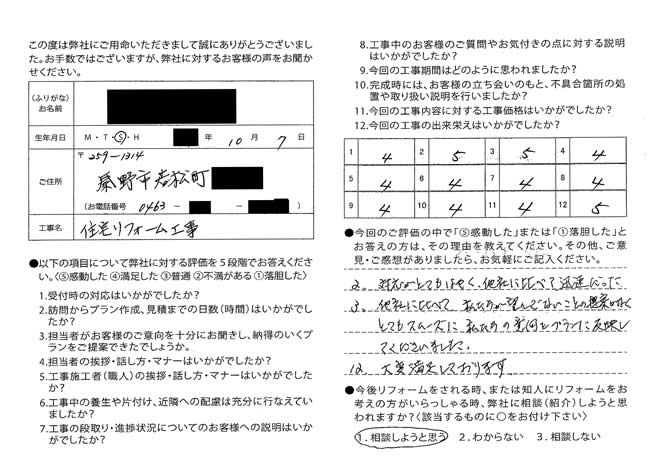 この度は弊社にご用命いただきまして誠にありがとうございまし
た。お手数ではございますが、弊社に対するお客様の声をお聞か
せください。
(ふりがな)
お名前
生年月日 M・T・Ⓢ・H 年 10 月 7 日
ご住所 〒259-1314
秦野市若松町
(お電話番号 0463- - )
工事名 住宅リフォーム工事
●以下の項目について弊社に対する評価を5段階でお答えくださ
い。〈⑤感動した④満足した③普通②不満がある①落胆した〉
1.受付時の対応はいかがでしたか?
2.訪問からプラン作成、見積までの日数(時間)はいかがでし
たか?
3.担当者がお客様のご意向を十分にお聞きし、納得のいくプ
ランをご提案できたでしょうか。
4.担当者の挨拶・話し方・マナーはいかがでしたか?
5.工事施工者(職人)の挨拶・話し方・マナーはいかがでした
か?
6.工事中の養生や片付け、近隣への配慮は充分に行なえてい
ましたか?
7.工事の段取り・進捗状況についてのお客様への説明はいか
がでしたか?
8.工事中のお客様のご質問やお気付きの点に対する説明
はいかがでしたか?
9.今回の工事期間はどのように思われましたか?
10.完成時には、お客様の立ち会いのもと、不具合箇所の処
置や取り扱い説明を行いましたか?
11.今回の工事内容に対する工事価格はいかがでしたか?
12.今回の工事の出来栄えはいかがでしたか?
1 4 2 5 3 5 4 4
5 4 6 4 7 4 8 4
9 4 10 4 11 4 12 5
●今回のご評価の中で「⑤感動した」または「①落胆した」と
お答えの方は、その理由を教えてください。その他、ご意
見・ご感想がありましたら、お気軽にご記入ください。
2. 対応がとてもはやく、他社に比べて迅速だった
3. 他社に比べて、私たちが望んでないことの提案がなく
とてもスムーズに私たちの意向をプランに反映し
てくださいました。
12. 大変満足しております。
●今後リフォームをされる時、または知人にリフォームをお
考えの方がいらっしゃる時、弊社に相談(紹介)しようと思
われますか?〈該当するものに○をお付け下さい〉
1.相談しようと思う 2.わからない 3.相談しない